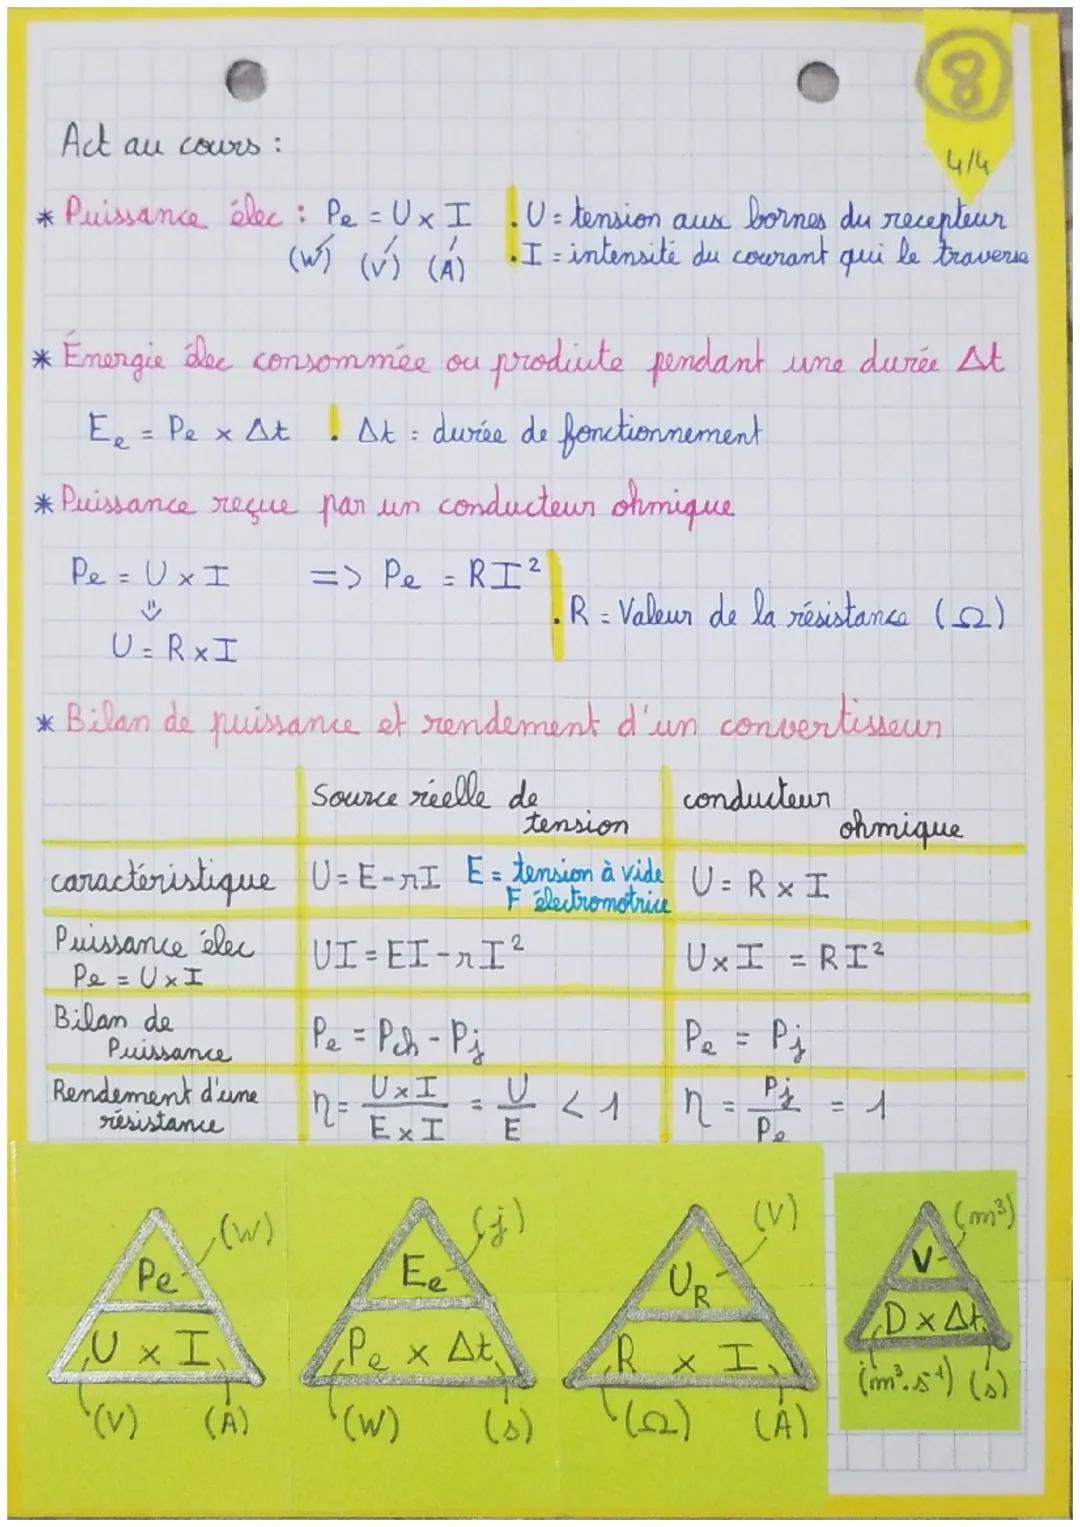 8
4/4
Act au cours :
* Puissance élec : Pe = U x I
(W) (V) (A)
. U = tension aux bornes du recepteur
. I = intensité du courant qui le traverse
* Énergie élec consommée ou produite pendant une durée Δt
Ee = Pe x Δt ! Δt : durée de fonctionnement
* Puissance reçue par un conducteur ohmique
Pe = U x I => Pe = RI²
U = R x I
. R = Valeur de la résistance (Ω)
* Bilan de puissance et rendement d'un convertisseur
Source réelle de tension
conducteur ohmique
caractéristique U = E - rI E = tension à vide F électromotrice U = R x I
Puissance élec Pe = U x I UI = EI - rI² U x I = RI²
Bilan de Puissance Pe = Pch - Pj Pe = Pj
Rendement d'une résistance η = U x I / E x I = U / E < 1 η = Pj / Pe = 1
Pe (W)
U x I
(V) (A)
Ee (j)
Pe x Δt
(W) (s)
UR (V)
R x I
(Ω) (A)
V (m³)
D x Δt
(m³.s⁻¹) (s)